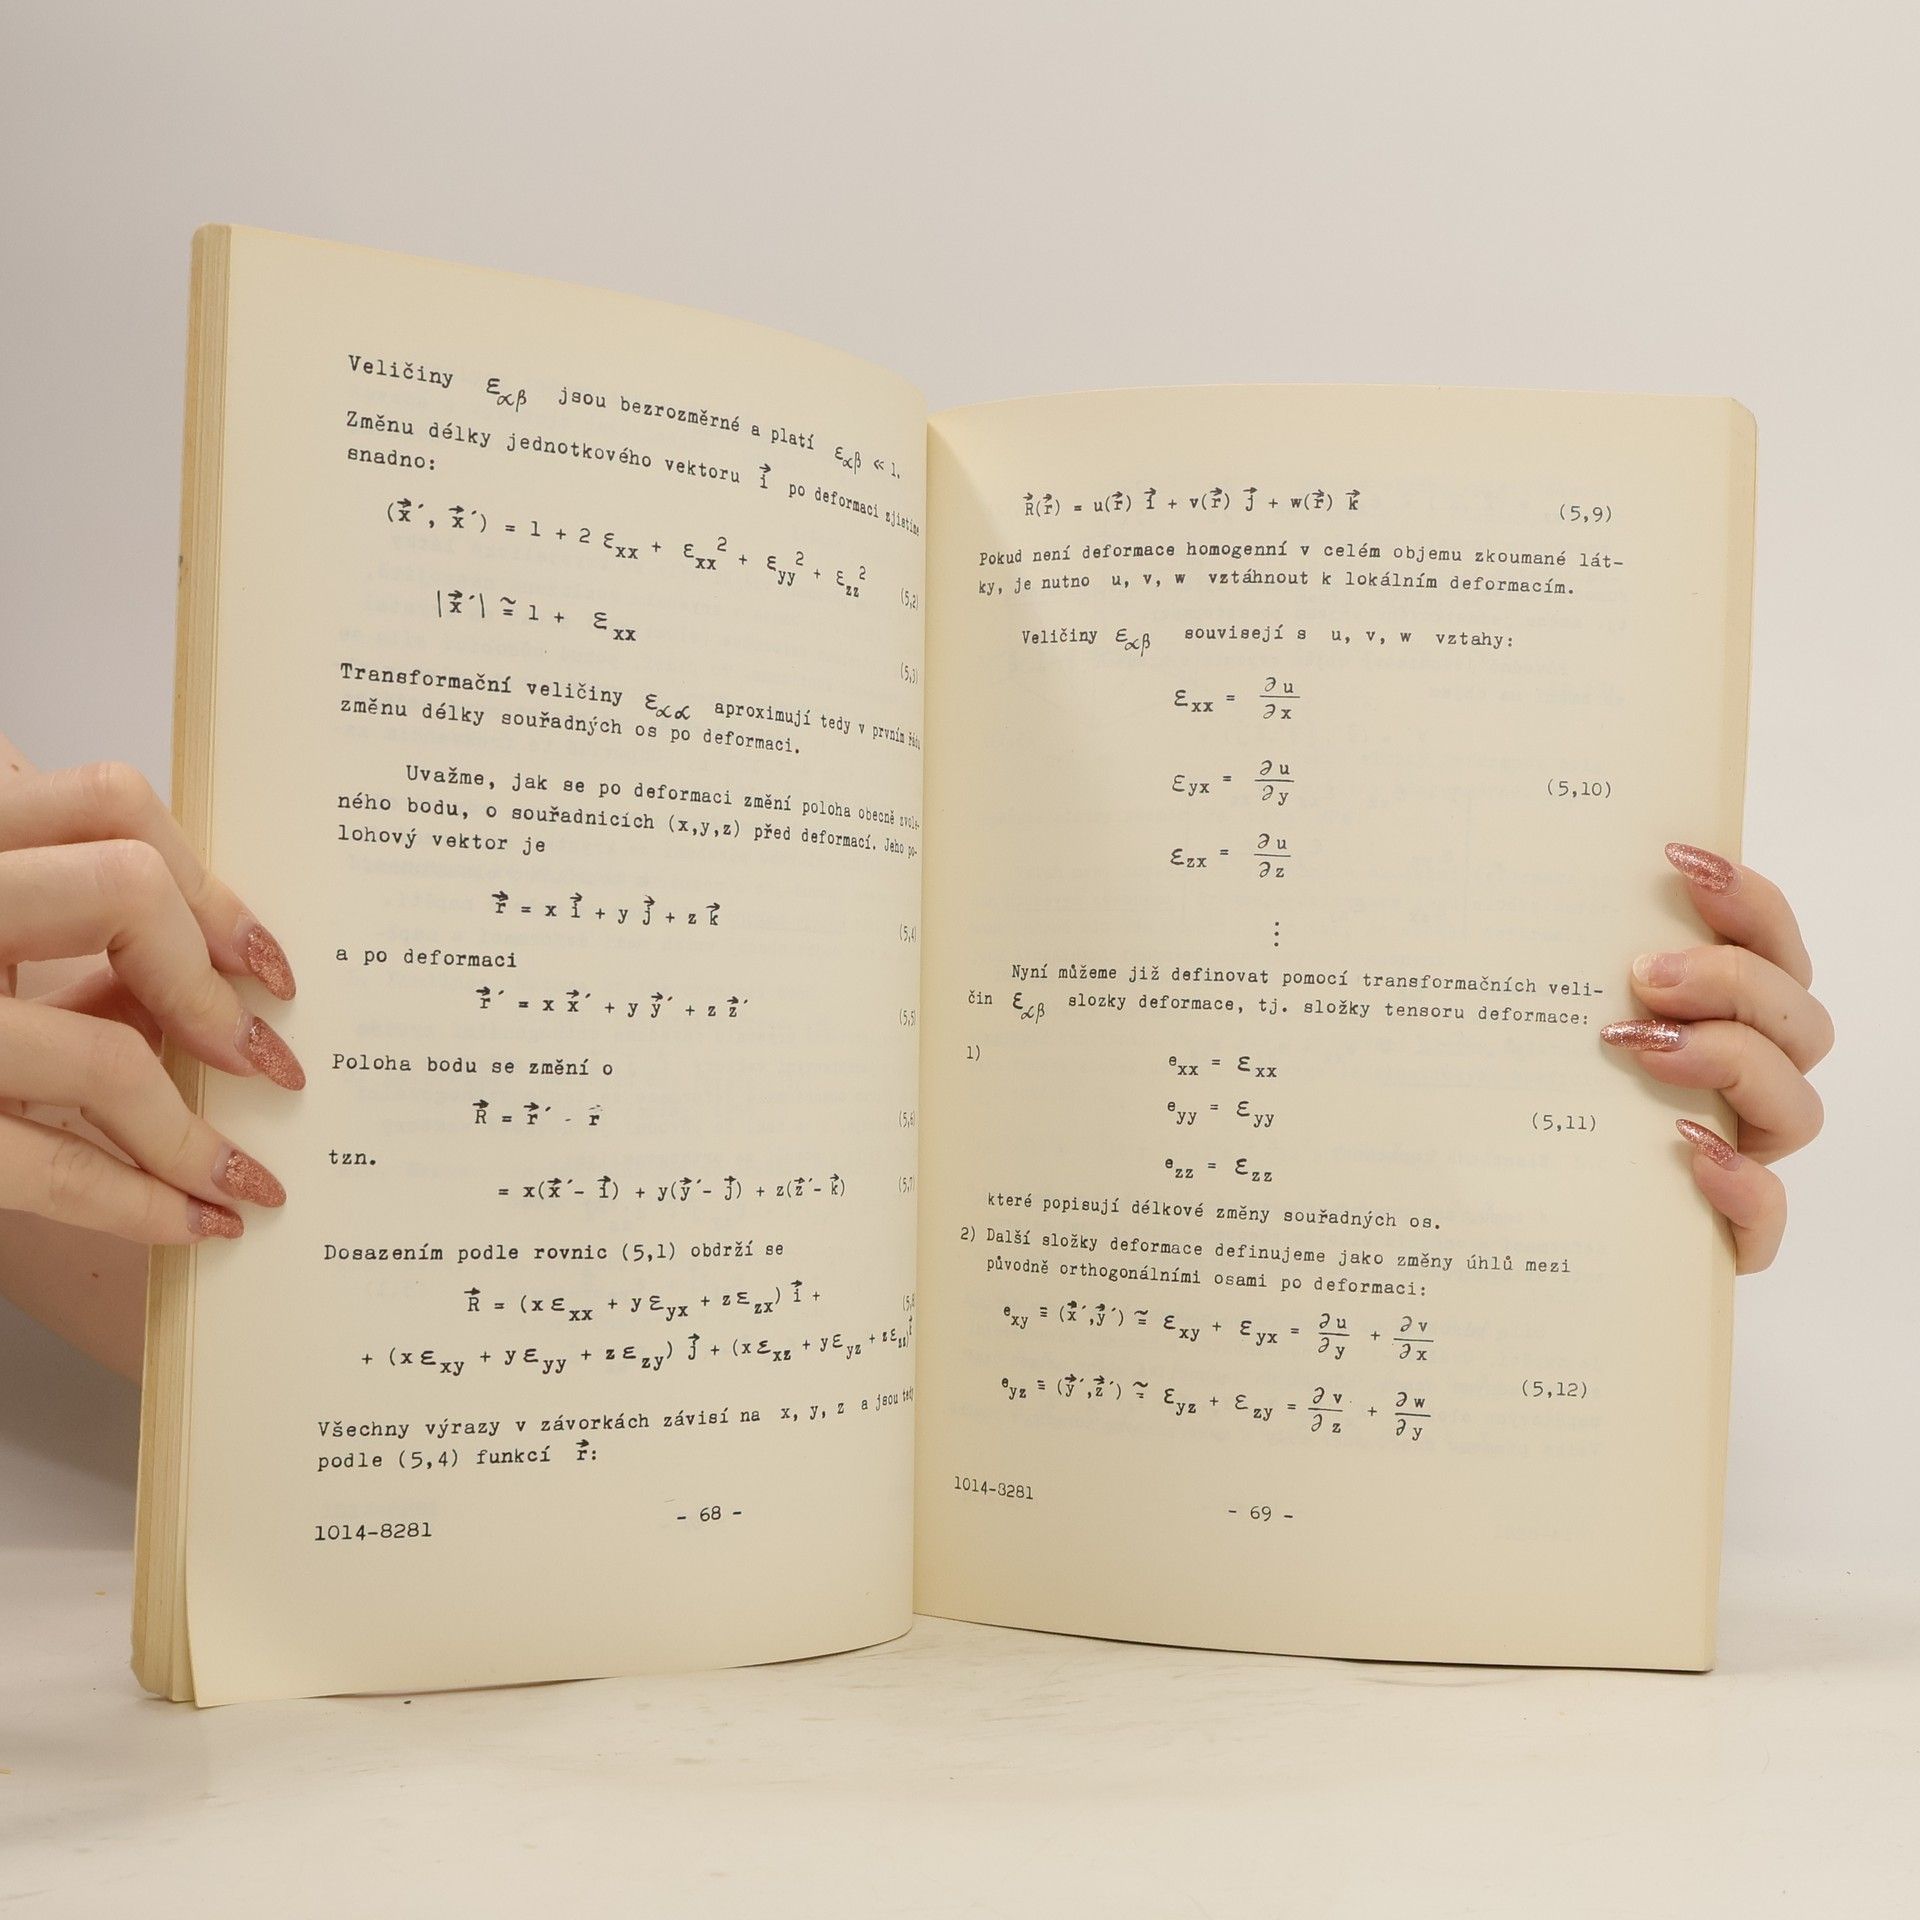 Veličiny ε_αβ jsou bezrozměrné a platí ε_αβ ≪ 1.
Změnu délky jednotkového vektoru i⃗ po deformaci zjistíme
snadno:
(x⃗´, x⃗´) = 1 + 2 ε_xx + ε_xx² + ε_yy² + ε_zz² (5,2)
|x⃗´| ≅ 1 + ε_xx (5,3)
Transformační veličiny ε_αα aproximují tedy v prvním řádu
změnu délky souřadných os po deformaci.
Uvažme, jak se po deformaci změní poloha obecně zvole-
ného bodu, o souřadnicích (x,y,z) před deformací. Jeho po-
lohový vektor je
r⃗ = x i⃗ + y j⃗ + z k⃗ (5,4)
a po deformaci
r⃗´ = x x⃗´ + y y⃗´ + z z⃗´ (5,5)
Poloha bodu se změní o
R⃗ = r⃗´ - r⃗ (5,6)
tzn.
= x(x⃗´- i⃗) + y(y⃗´- j⃗) + z(z⃗´- k⃗) (5,7)
Dosazením podle rovnic (5,1) obdrží se
R⃗ = (x ε_xx + y ε_yx + z ε_zx) i⃗ + (5,8
+ (x ε_xy + y ε_yy + z ε_zy) j⃗ + (x ε_xz + y ε_yz + z ε_zz)
Všechny výrazy v závorkách závisí na x, y, z a jsou tedy
podle (5,4) funkcí r⃗:
1014-8281
- 68 -
R⃗(r⃗) = u(r⃗) i⃗ + v(r⃗) j⃗ + w(r⃗) k⃗ (5,9)
Pokud není deformace homogenní v celém objemu zkoumané lát-
ky, je nutno u, v, w vztáhnout k lokálním deformacím.
Veličiny ε_αβ souvisejí s u, v, w vztahy:
ε_xx = ∂u/∂x
ε_yx = ∂u/∂y (5,10)
ε_zx = ∂u/∂z
⋮
Nyní můžeme již definovat pomocí transformačních veli-
čin ε_αβ slozky deformace, tj. složky tensoru deformace:
1) e_xx = ε_xx
e_yy = ε_yy (5,11)
e_zz = ε_zz
které popisují délkové změny souřadných os.
2) Další složky deformace definujeme jako změny úhlů mezi
původně orthogonálními osami po deformaci:
e_xy ≡ (x⃗´,y⃗´) ≅ ε_xy + ε_yx = ∂u/∂y + ∂v/∂x
e_yz ≡ (y⃗´,z⃗´) ≅ ε_yz + ε_zy = ∂v/∂z + ∂w/∂y (5,12)
1014-8281
- 69 -